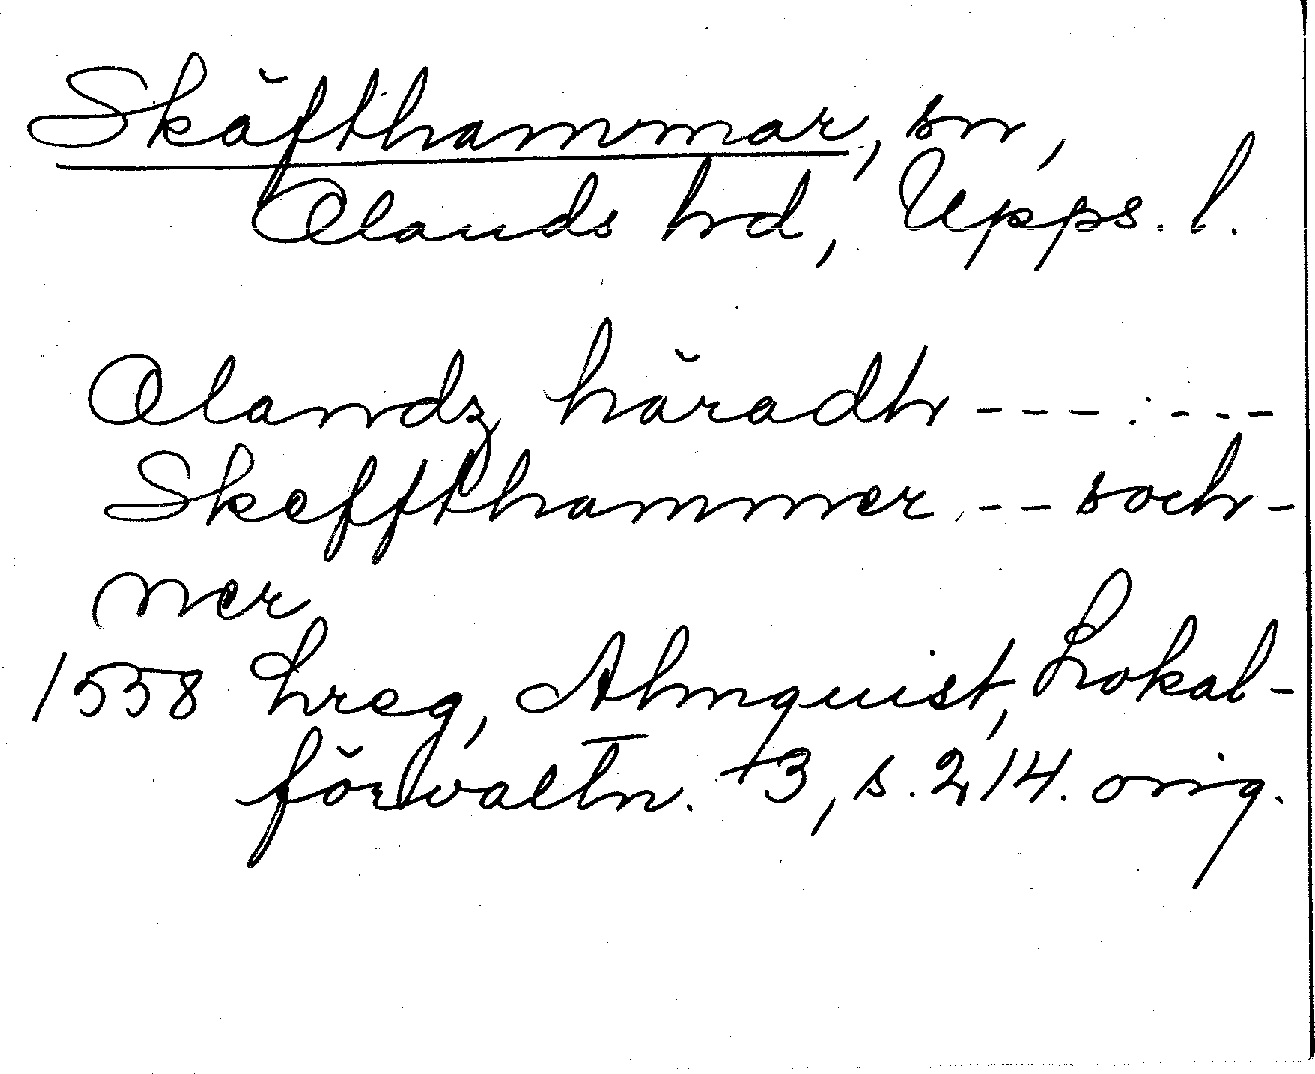 Skäfthammar, sn,
Olands hd, Upps. l.
Olandz häradh --- : ---
Skeffthammer -- soch-
ner
1558 hreg, Almquist, Lokal-
förvaltn. 3, s. 214. orig.